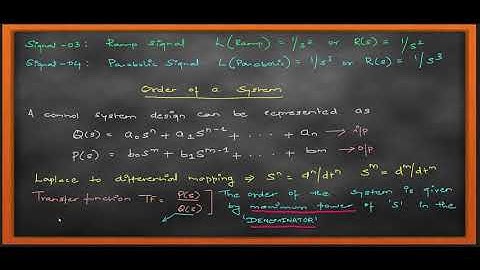 Signal-03: Ramp signal L(Ramp) = 1/s² or R(s) = 1/s²
Signal-04: Parabolic Signal L(Parabolic) = 1/s³ or R(s) = 1/s³
Order of a System
A control system design can be represented as
Q(s) = a₀sⁿ + a₁sⁿ⁻¹ + . . . + aₙ → i/p
P(s) = b₀sᵐ + b₁sᵐ⁻¹ + . . . + bₘ → o/p
Laplace to differential mapping ⇒ sⁿ = dⁿ/dtⁿ sᵐ = dᵐ/dtᵐ
Transfer function TF = P(s)/Q(s) ] The order of the system is given
by maximum power of 's' in the
'DENOMINATOR'